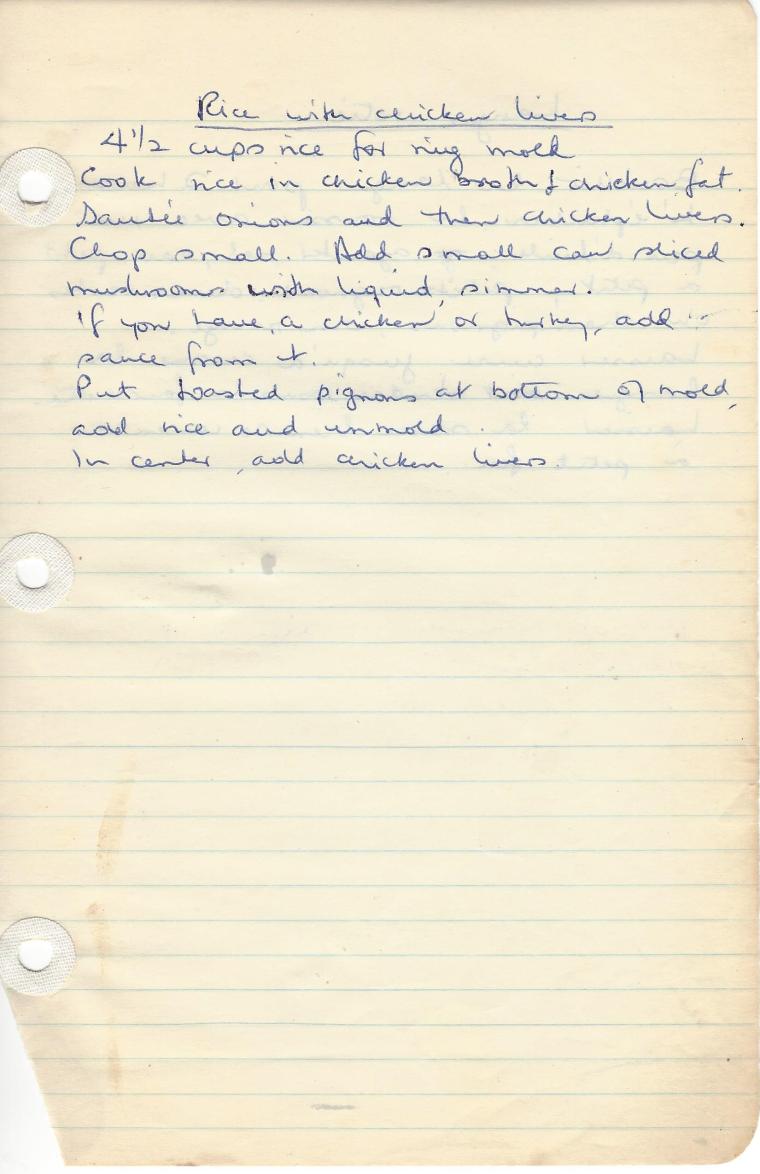 Rice with chicken livers
4 1/2 cups rice for ring mold
Cook rice in chicken broth & chicken fat.
Sautée onions and then chicken livers.
Chop small. Add small can sliced
mushrooms with liquid, simmer.
If you have a chicken or turkey, add
sauce from it.
Put toasted pignons at bottom of mold,
add rice and unmold.
In center, add chicken livers.